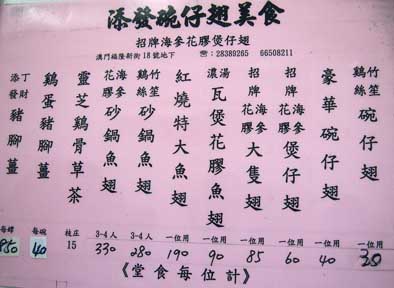 添發碗仔翅美食
招牌海參花膠煲仔翅
澳門福隆新街18號地下 ☎:28389265 66508211
竹笙鷄絲碗仔翅 一位用 30
豪華碗仔翅 一位用 40
招牌海參花膠煲仔翅 一位用 60
招牌海參花膠大隻翅 一位用 85
濃湯瓦煲花膠魚翅 一位用 90
紅燒特大魚翅 一位用 190
竹笙鷄絲砂鍋魚翅 3-4人 280
海參花膠砂鍋魚翅 3-4人 330
靈芝鷄骨草茶 枝庄 15
鷄蛋豬腳薑 每碗 40
添丁發財豬腳薑
《堂食每位計》